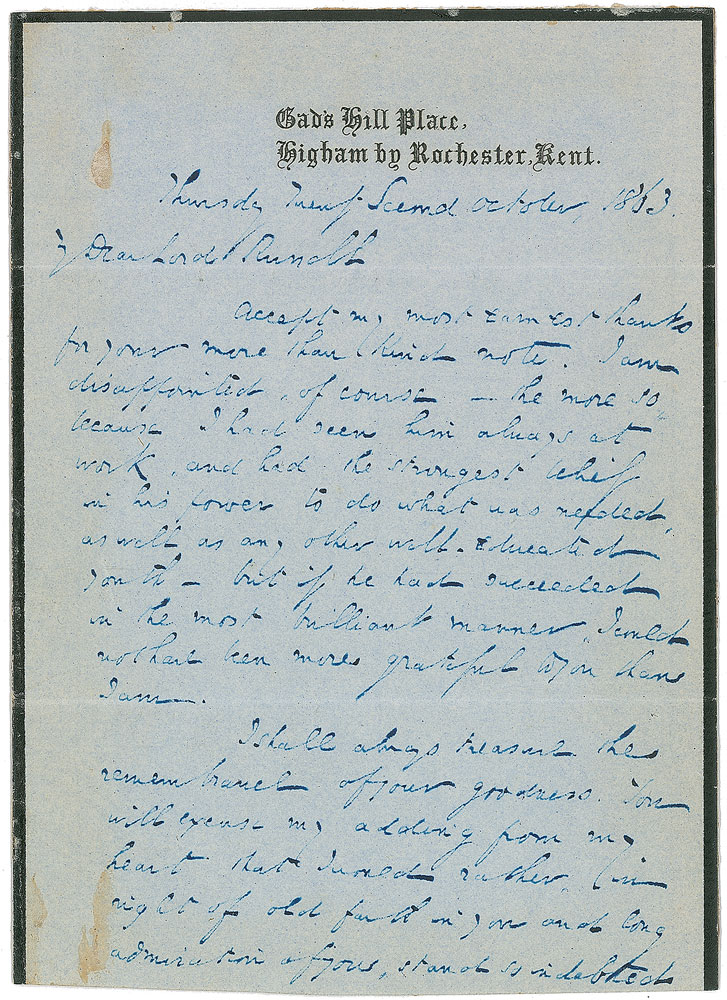 Gad's Hill Place,
Higham by Rochester, Kent.
Thursday Twenty Second October, 1863.
My Dear Lord Russell
Accept my most earnest thanks
for your more than kind note. I am
disappointed, of course – the more so,
because I had seen him always at
work, and had the strongest belief
in his power to do what was needed,
as well as any other well-educated
youth – but if he had succeeded
in the most brilliant manner, I could
not have been more grateful to you than
I am.
I shall always treasure the
remembrance of your goodness. You
will excuse my adding from my
heart that I would rather, (in
right of old faith in you and long
admiration of you, stand so indebted